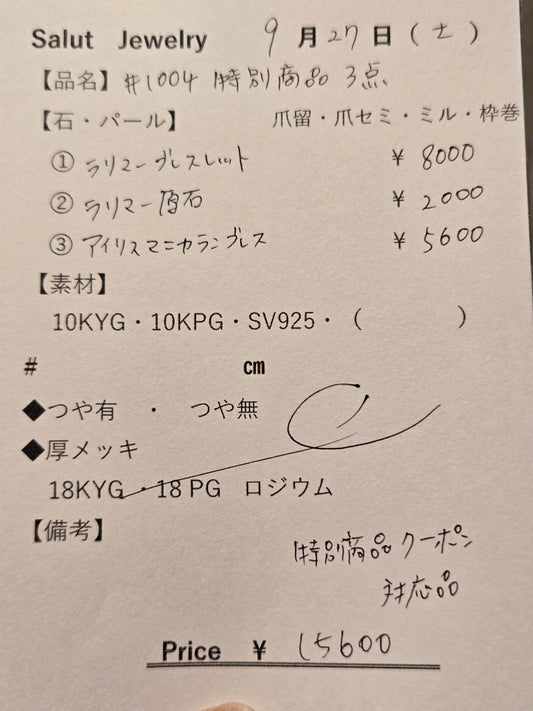 Salut Jewelry 9月27日(土)
【品名】#1004 特別商品 3点
【石・パール】 爪留・爪セミ・ミル・枠巻
① ラリマーブレスレット ¥ 8000
② ラリマー原石 ¥ 2000
③ アイリスマニカランブレス ¥ 5600
【素材】
10KYG・10KPG・SV925・( )
# ㎝
◆つや有 ・ つや無
◆厚メッキ
18KYG・18PG ロジウム
【備考】
特別商品クーポン
対応品
Price ¥ 15600